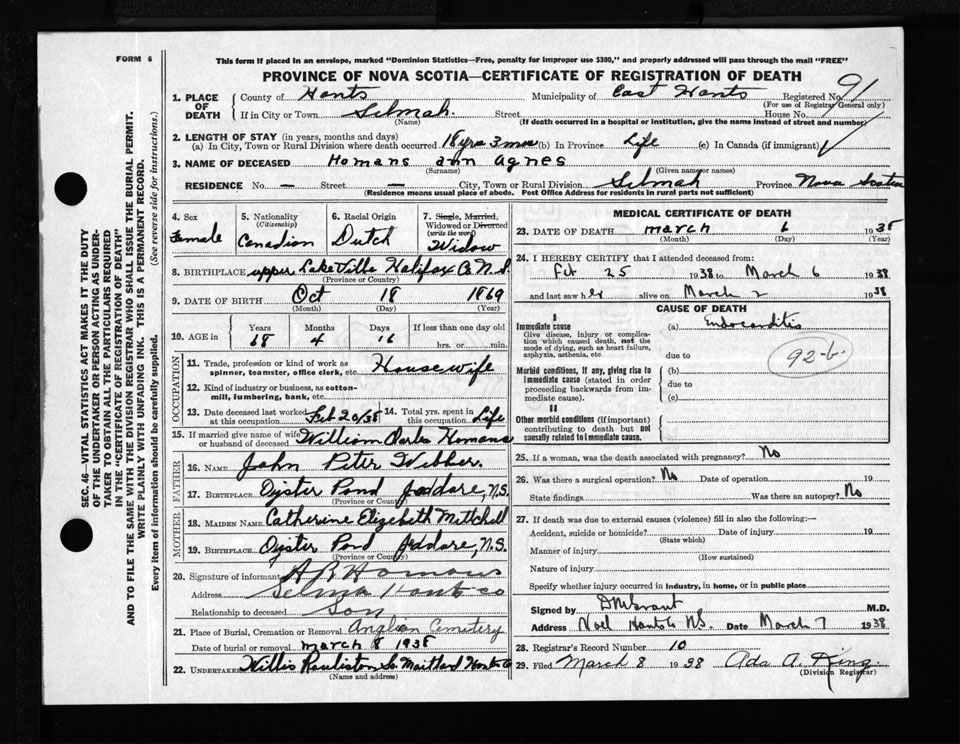 FORM 6
This form if placed in an envelope, marked "Dominion Statistics—Free, penalty for improper use $300," and properly addressed will pass through the mail "FREE"
PROVINCE OF NOVA SCOTIA—CERTIFICATE OF REGISTRATION OF DEATH
1. PLACE OF DEATH County of Hants Municipality of East Hants Registered No. 91
(For use of Registrar General only)
If in City or Town Selmah. Street House No.
(Name) (If death occurred in a hospital or institution, give the name instead of street and number)
2. LENGTH OF STAY (in years, months and days)
(a) In City, Town or Rural Division where death occurred 18 yrs 3 mos (b) In Province Life (c) In Canada (if immigrant)
3. NAME OF DECEASED Homans ann agnes
(Surname) (Given name or names)
RESIDENCE No. — Street — City, Town or Rural Division Selmah Province Nova Scotia
(Residence means usual place of abode. Post Office Address for residents in rural parts not sufficient)
4. Sex Female
5. Nationality (Citizenship) Canadian
6. Racial Origin Dutch
7. Single, Married, Widowed or Divorced (write the word) Widow
8. BIRTHPLACE upper Lakeville Halifax Co. N.S.
(Province or Country)
9. DATE OF BIRTH Oct 18 1869
(Month) (Day) (Year)
10. AGE in Years 68 Months 4 Days 16 If less than one day old hrs. or min.
OCCUPATION
11. Trade, profession or kind of work as spinner, teamster, office clerk, etc. Housewife
12. Kind of industry or business, as cotton-mill, lumbering, bank, etc.
13. Date deceased last worked at this occupation Feb 20/38 14. Total yrs. spent in this occupation Life
15. If married give name of wife or husband of deceased William Homans
FATHER
16. NAME John Peter Webber.
17. BIRTHPLACE Oyster Pond Jeddore, N.S.
(Province or Country)
MOTHER
18. MAIDEN NAME Catherine Elizabeth Mitchell
19. BIRTHPLACE Oyster Pond Jeddore, N.S.
(Province or Country)
20. Signature of informant A R Homans
Address Selma Hants co
Relationship to deceased Son
21. Place of Burial, Cremation or Removal Anglican Cemetery
Date of burial or removal march 8 1938
22. UNDERTAKER Willis So Maitland Hants Co
(Name and address)
MEDICAL CERTIFICATE OF DEATH
23. DATE OF DEATH march 6 1938
(Month) (Day) (Year)
24. I HEREBY CERTIFY that I attended deceased from:
Feb 25 1938 to March 6 1938
and last saw her alive on March 2 1938
CAUSE OF DEATH
I
Immediate cause (a) Endocarditis
Give disease, injury or complication which caused death, not the mode of dying, such as heart failure, asphyxia, asthenia, etc.
due to
92-b.
Morbid conditions, if any, giving rise to immediate cause (stated in order proceeding backwards from immediate cause).
(b)
due to
(c)
II
Other morbid conditions (if important) contributing to death but not causally related to immediate cause.
25. If a woman, was the death associated with pregnancy? No
26. Was there a surgical operation? No Date of operation 19
State findings Was there an autopsy? No
27. If death was due to external causes (violence) fill in also the following:—
Accident, suicide or homicide? Date of injury 19
(State which)
Manner of injury
(How sustained)
Nature of injury
Specify whether injury occurred in industry, in home, or in public place
Signed by M.D.
Address Noel Hants Co N.S. Date March 7 1938
28. Registrar's Record Number 10
29. Filed March 8 1938 Ada A. King.
(Division Registrar)
SEC. 46—VITAL STATISTICS ACT MAKES IT THE DUTY
OF THE UNDERTAKER OR PERSON ACTING AS UNDER-
TAKER TO OBTAIN ALL THE PARTICULARS REQUIRED
IN THE "CERTIFICATE OF REGISTRATION OF DEATH"
AND TO FILE THE SAME WITH THE DIVISION REGISTRAR WHO SHALL ISSUE THE BURIAL PERMIT.
WRITE PLAINLY WITH UNFADING INK. THIS IS A PERMANENT RECORD.
Every item of information should be carefully supplied. (See reverse side for instructions.)